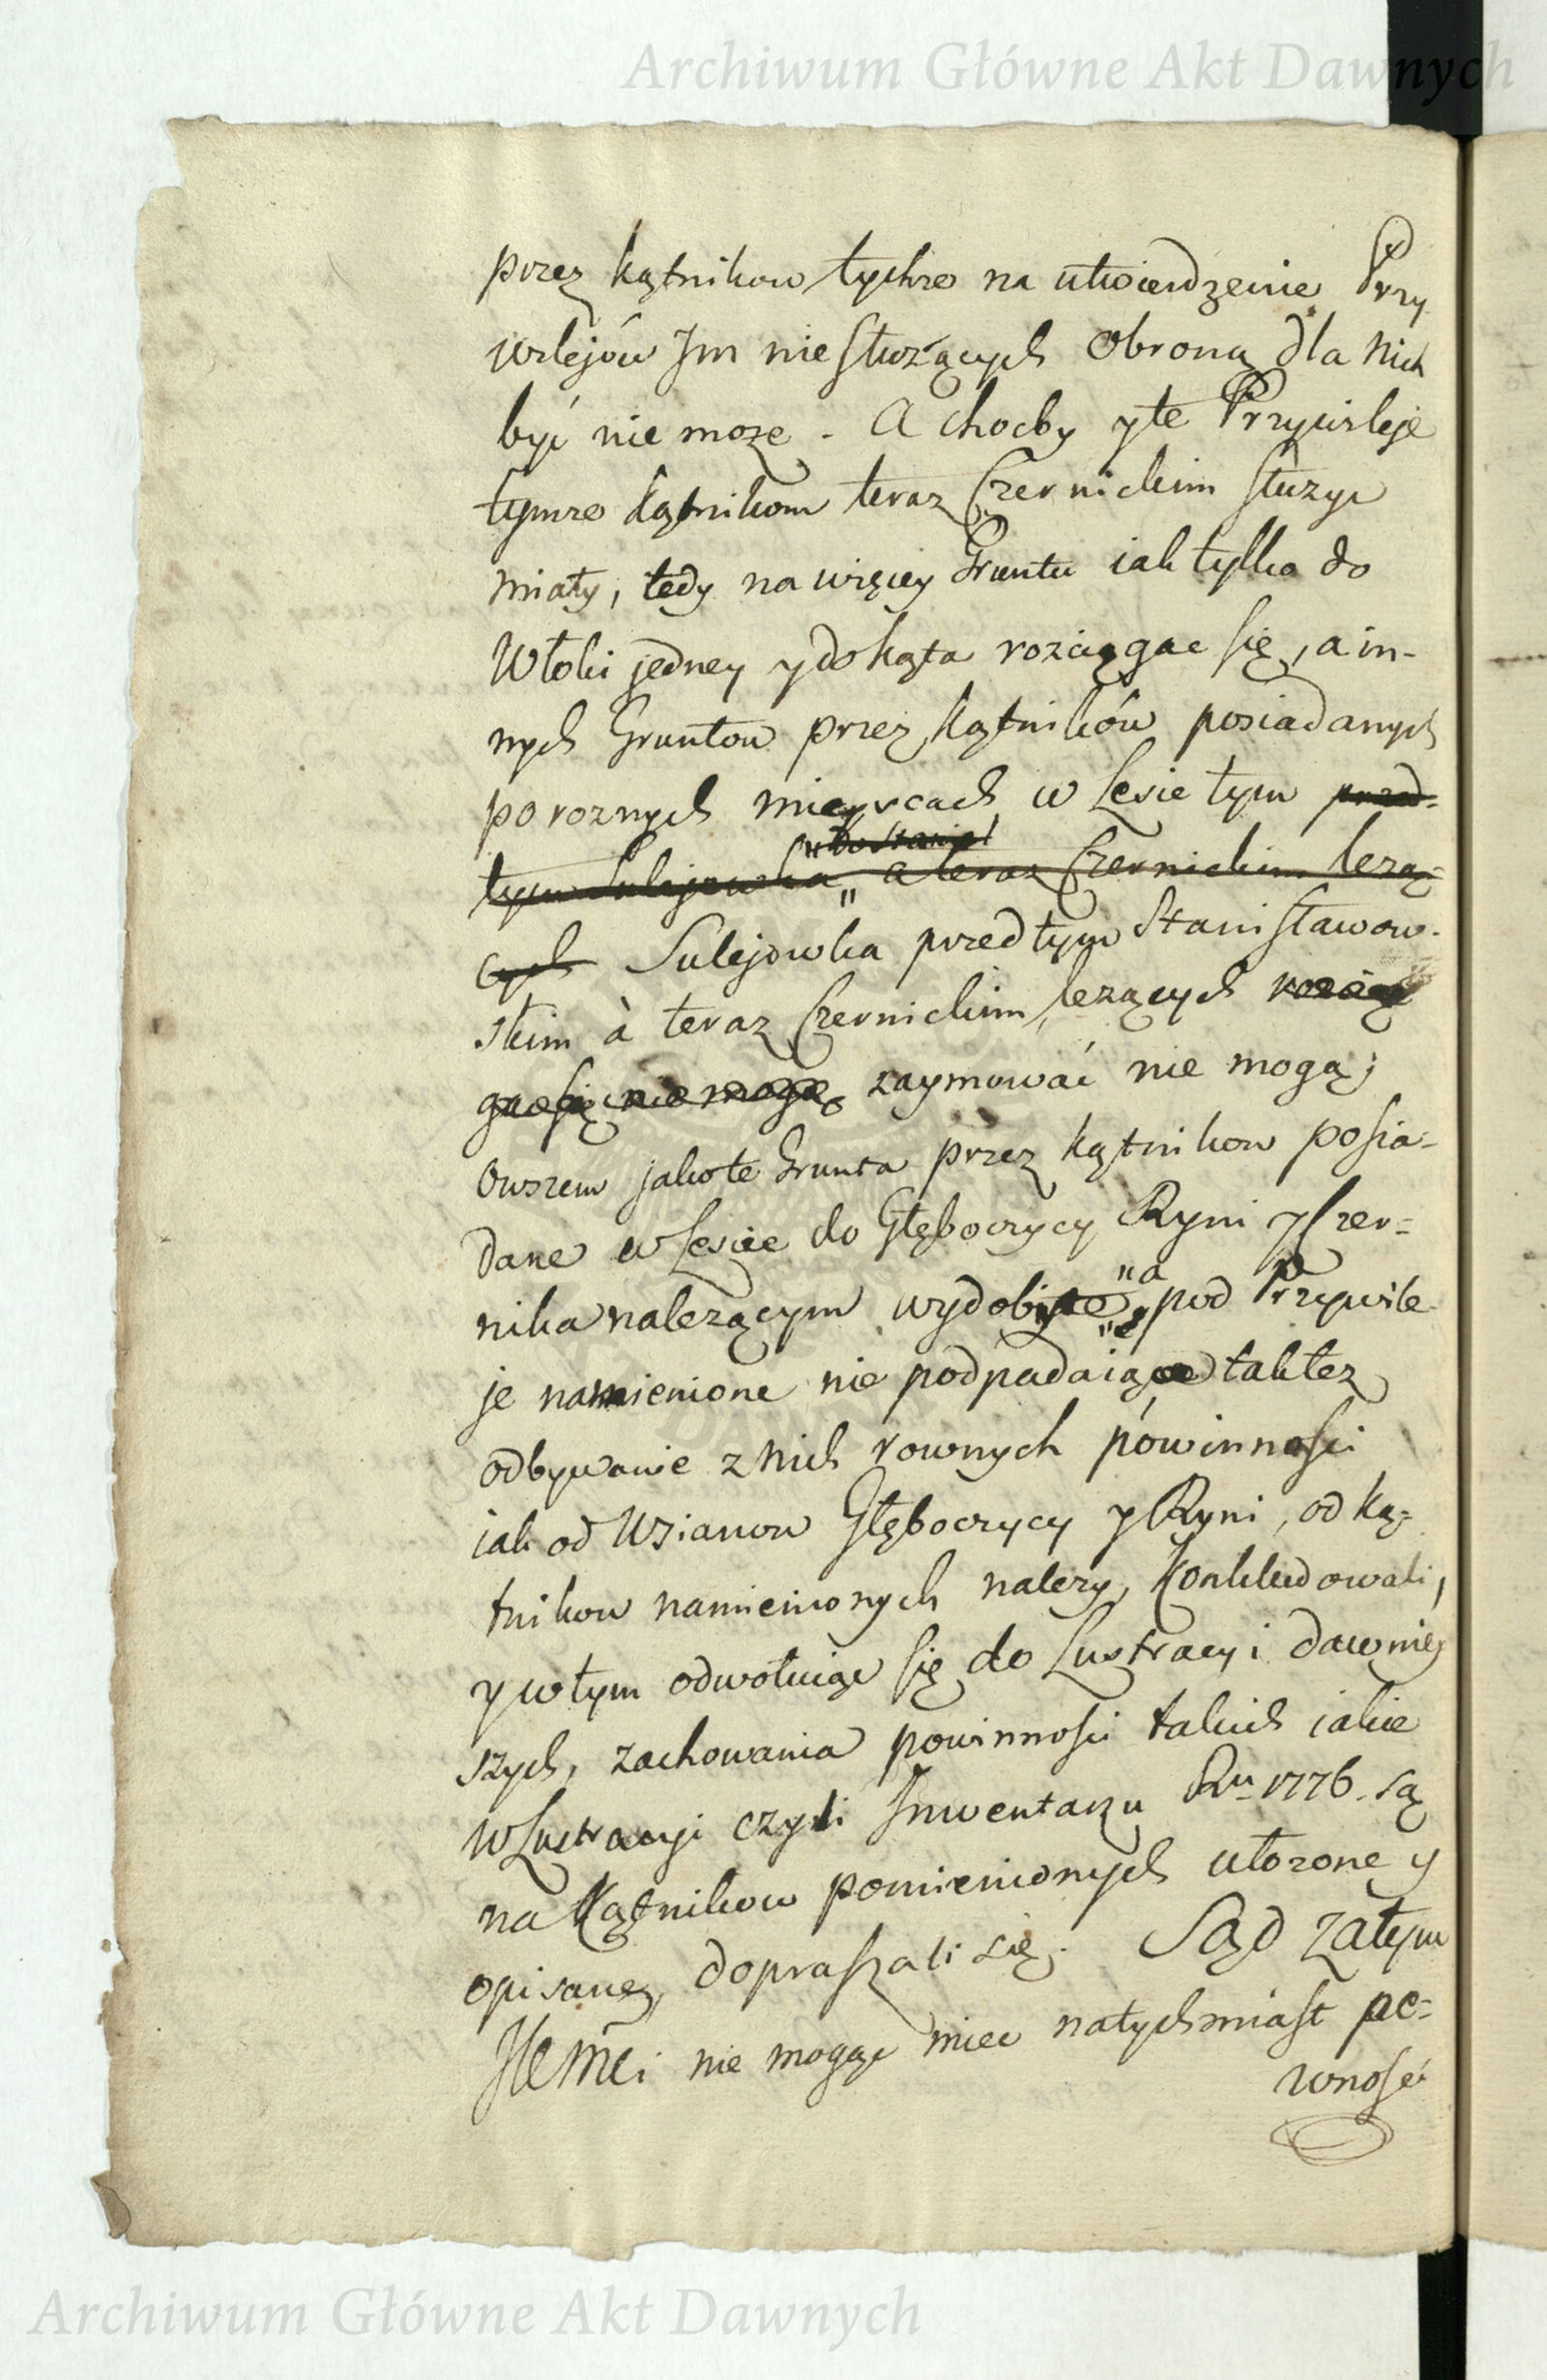 Archiwum Główne Akt Dawnych
przez kątnikow tychze na utwierdzenie Przy
wilejów Im nie służących Obroną dla Nich
być nie moze. A choćby y te Przywileje
tymze kątnikom teraz Czernickim służyć
miały, tedy na więcey Gruntu iak tylko do
Włoki jedney y do kąta rozciągac się, a in-
nych Gruntow przez kątników posiadanych
po roznych mieyscach w Lesie tym przed-
tym Sulejowka, a teraz Czernickim lezą-
cych Sulejowka przedtym Stanisławow-
skim à teraz Czernickim lezących rozcią
gac się nie mogą zaymować nie mogą;
Owszem jako te Grunta przez kątnikow posia-
dane w Lesie do Głęboczycy Ryni y Czer-
nika nalezącym wydobyte "a pod Przywile-
je namienione nie podpadaiące tak tez
odbywanie z nich rownych powinności
iak od Wsianow Głęboczycy y Ryni, od ką-
tnikow namienionych nalezy, konkludowali,
y w tym odwołuiąc się do Lustracyi dawniey
szych, zachowania powinności takich iakie
w Lustracyi czyli Inwentarzu Ru 1776. są
na Kątnikow pomienionych ułozone y
opisane, dopraszali się. Sąd zatym
nie mogąc miec natychmiast pe-
wność
Archiwum Główne Akt Dawnych